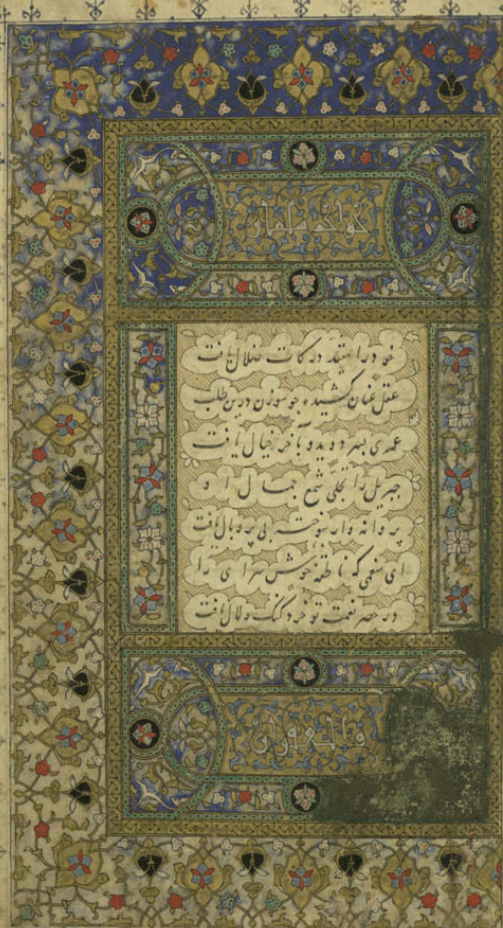 خواجه سلمان
خود را مقید درکات ضلال یافت
عقل عنان کشیده چو سوزن درین طلب
عمری بسر دویده بآخر خیال یافت
جبریل را تجلی شمع جمال او
پروانه وار سوخت بی پر و بال یافت
ای منعمی که ناطقه خوش سرای را
در حصر نعمت تو خرد کنک و لال یافت